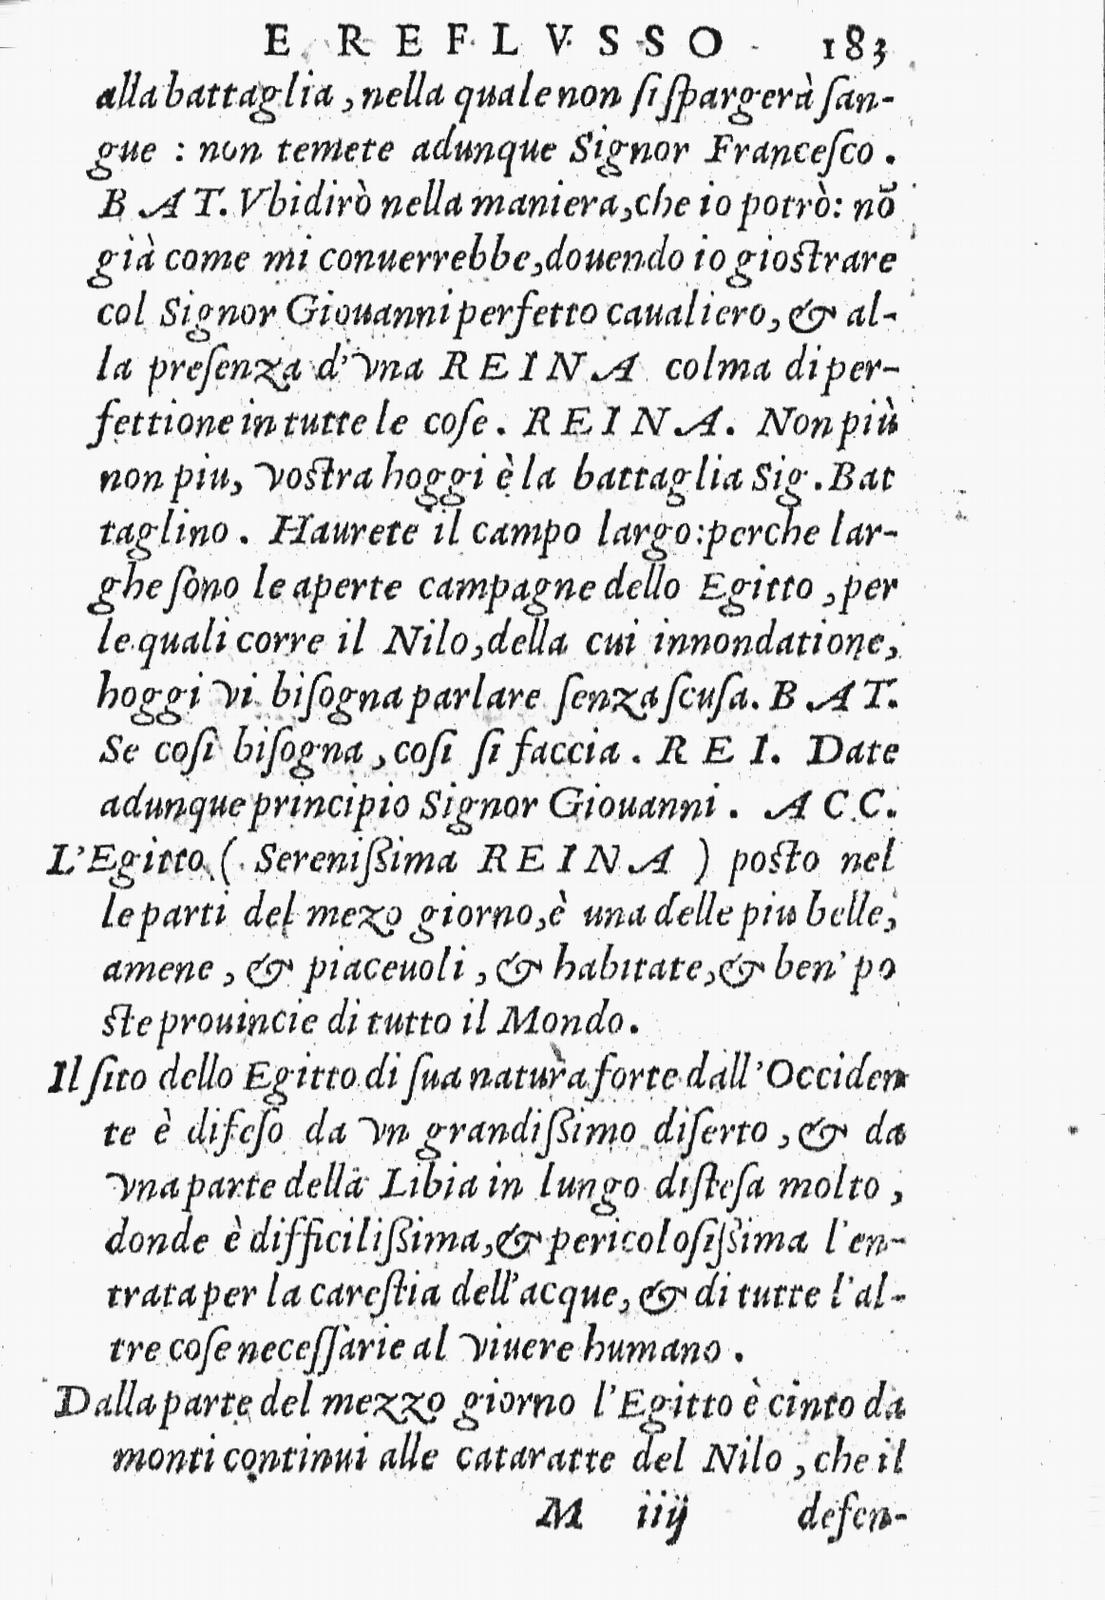 E REFLVSSO 183
alla battaglia, nella quale non si spargerà san-
gue : non temete adunque Signor Francesco.
BAT. Vbidirò nella maniera, che io potrò: nō
già come mi conuerrebbe, douendo io giostrare
col Signor Giouanni perfetto caualiero, & al-
la presenza d'vna REINA colma di per-
fettione in tutte le cose. REINA. Non più
non piu, vostra hoggi è la battaglia Sig. Bat
taglino. Haurete il campo largo: perche lar-
ghe sono le aperte campagne dello Egitto, per
le quali corre il Nilo, della cui innondatione,
hoggi vi bisogna parlare senza scusa. BAT.
Se cosi bisogna, cosi si faccia. REI. Date
adunque principio Signor Giouanni. ACC.
L'Egitto (Serenissima REINA) posto nel
le parti del mezo giorno, è una delle piu belle,
amene, & piaceuoli, & habitate, & ben' po
ste prouincie di tutto il Mondo.
Il sito dello Egitto di sua natura forte dall'Occiden
te è difeso da vn grandissimo diserto, & da
vna parte della Libia in lungo distesa molto,
donde è difficilissima, & pericolosissima l'en-
trata per la carestia dell'acque, & di tutte l'al-
tre cose necessarie al viuere humano.
Dalla parte del mezzo giorno l'Egitto è cinto da
monti continui alle cataratte del Nilo, che il
M iiij defen-